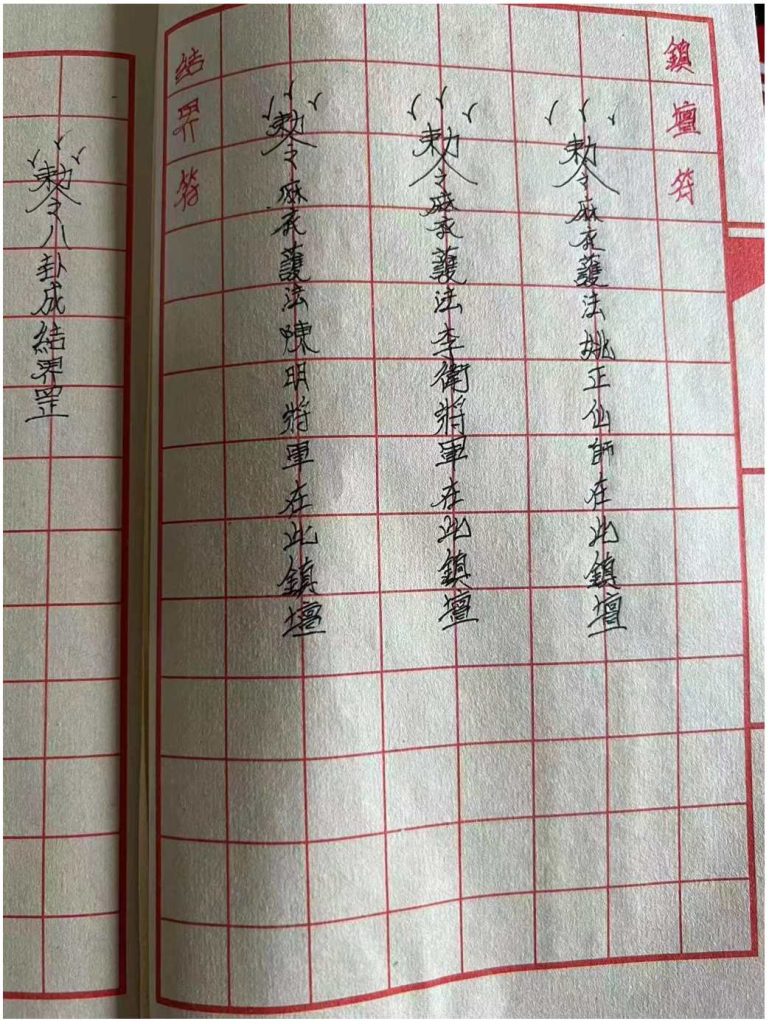 鎮壇符
勅令麻衣護法姚正仙師在此鎮壇
勅令麻衣護法李衛將軍在此鎮壇
勅令麻衣護法陳明將軍在此鎮壇
結界符
勅令八卦成結界罡